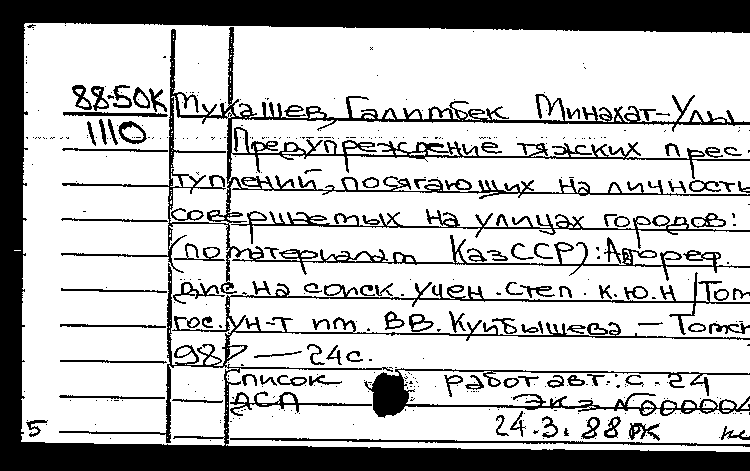 88-50К Мукашев, Галимбек Минахат-Улы
1110 Предупреждение тяжских прес-
туплений, посягающих на личность
совершаемых на улицах городов:
(по материалам КазССР): Автореф.
дис. на соиск. учен. степ. к.ю.н / Том
гос. ун-т им. В.В. Куйбышева. — Томск
987 — 24 с.
Список работ авт.: с. 24
ДСП Экз N000004
24.3.88 РК
5